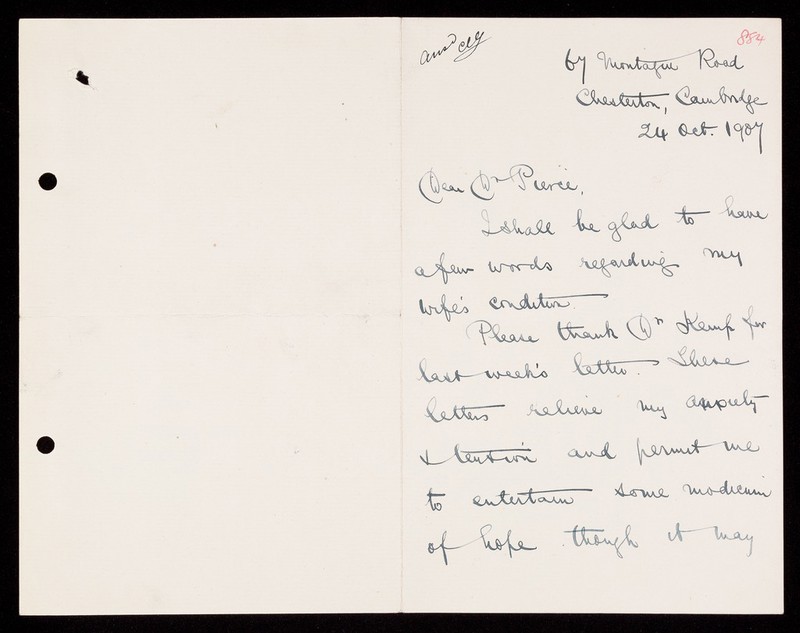 ansd
884
67 Montague Road
Chesterton, Cambridge
24 Oct. 1907
Dear Dr Pierce,
I shall be glad to have
a few words regarding my
wife's condition.
Please thank Dr Kemp for
last week's letter. These
letters relieve my anxiety
& tension and permit me
to entertain some modicum
of hope though it may